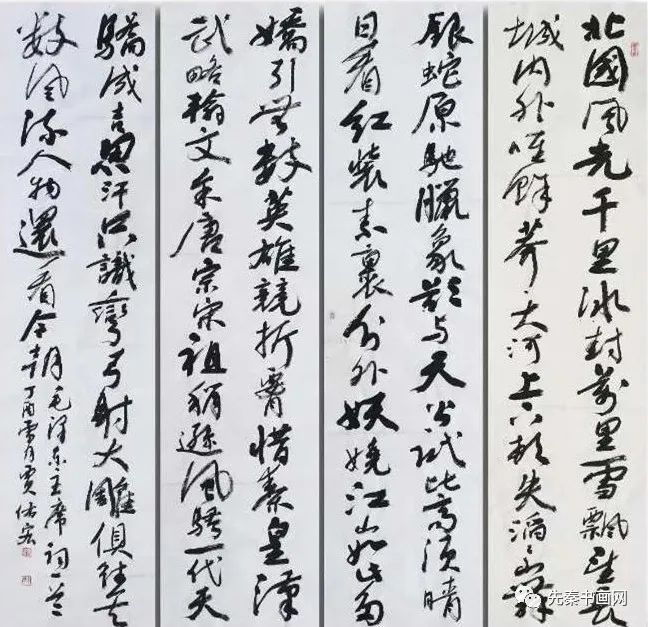 北國風光千里冰封萬里雪飄望長
城内外唯餘莽々大河上下頓失滔々山舞
銀蛇原馳臘象欲与天公試比高須晴
日看红裝素裹分外妖嬈江山如此多
嬌引無數英雄競折腰惜秦皇漢
武略輸文采唐宗宋祖稍遜風騷一代天
驕成吉思汗只識彎弓射大雕俱往矣
數風流人物還看今朝
毛泽东主席词一首
丁酉雪月賈
先秦书画网